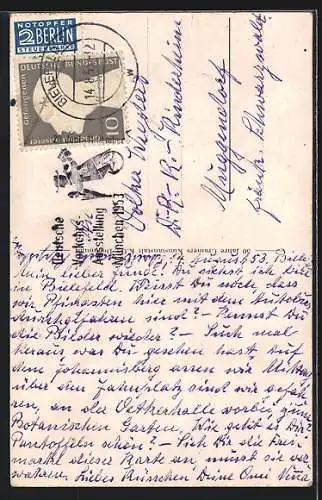 NOTOPFER
2 BERLIN
STEUERMARKE
DEUTSCHE BUNDESPOST
10
BIELEFELD
Deutsche
Verkehrs
Ausstellung
München 1953
D.-R.-K.-Kinderheim
Muggendorf
fränk. Schweiz
August 53.
Mein lieber Junge! Du siehst ich bin
in Bielefeld. Weisst Du noch dass
wir Pfingsten hier mit dem Autobus
durchgefahren sind? - Kennst Du
die Bilder wieder? - Such mal
heraus, was Du gesehen hast. Auf
dem Johannisberg assen wir Mittag
über den Jahnplatz sind wir gefah
ren, an der Oetkerhalle vorbei, zum
Botanischen Garten. Wie geht es Dir?
Pantoffeln schon? - Sieh Dir die Frei
marke dieser Karte an musst sie ver
wahren. Liebes Küsschen Deine Omi